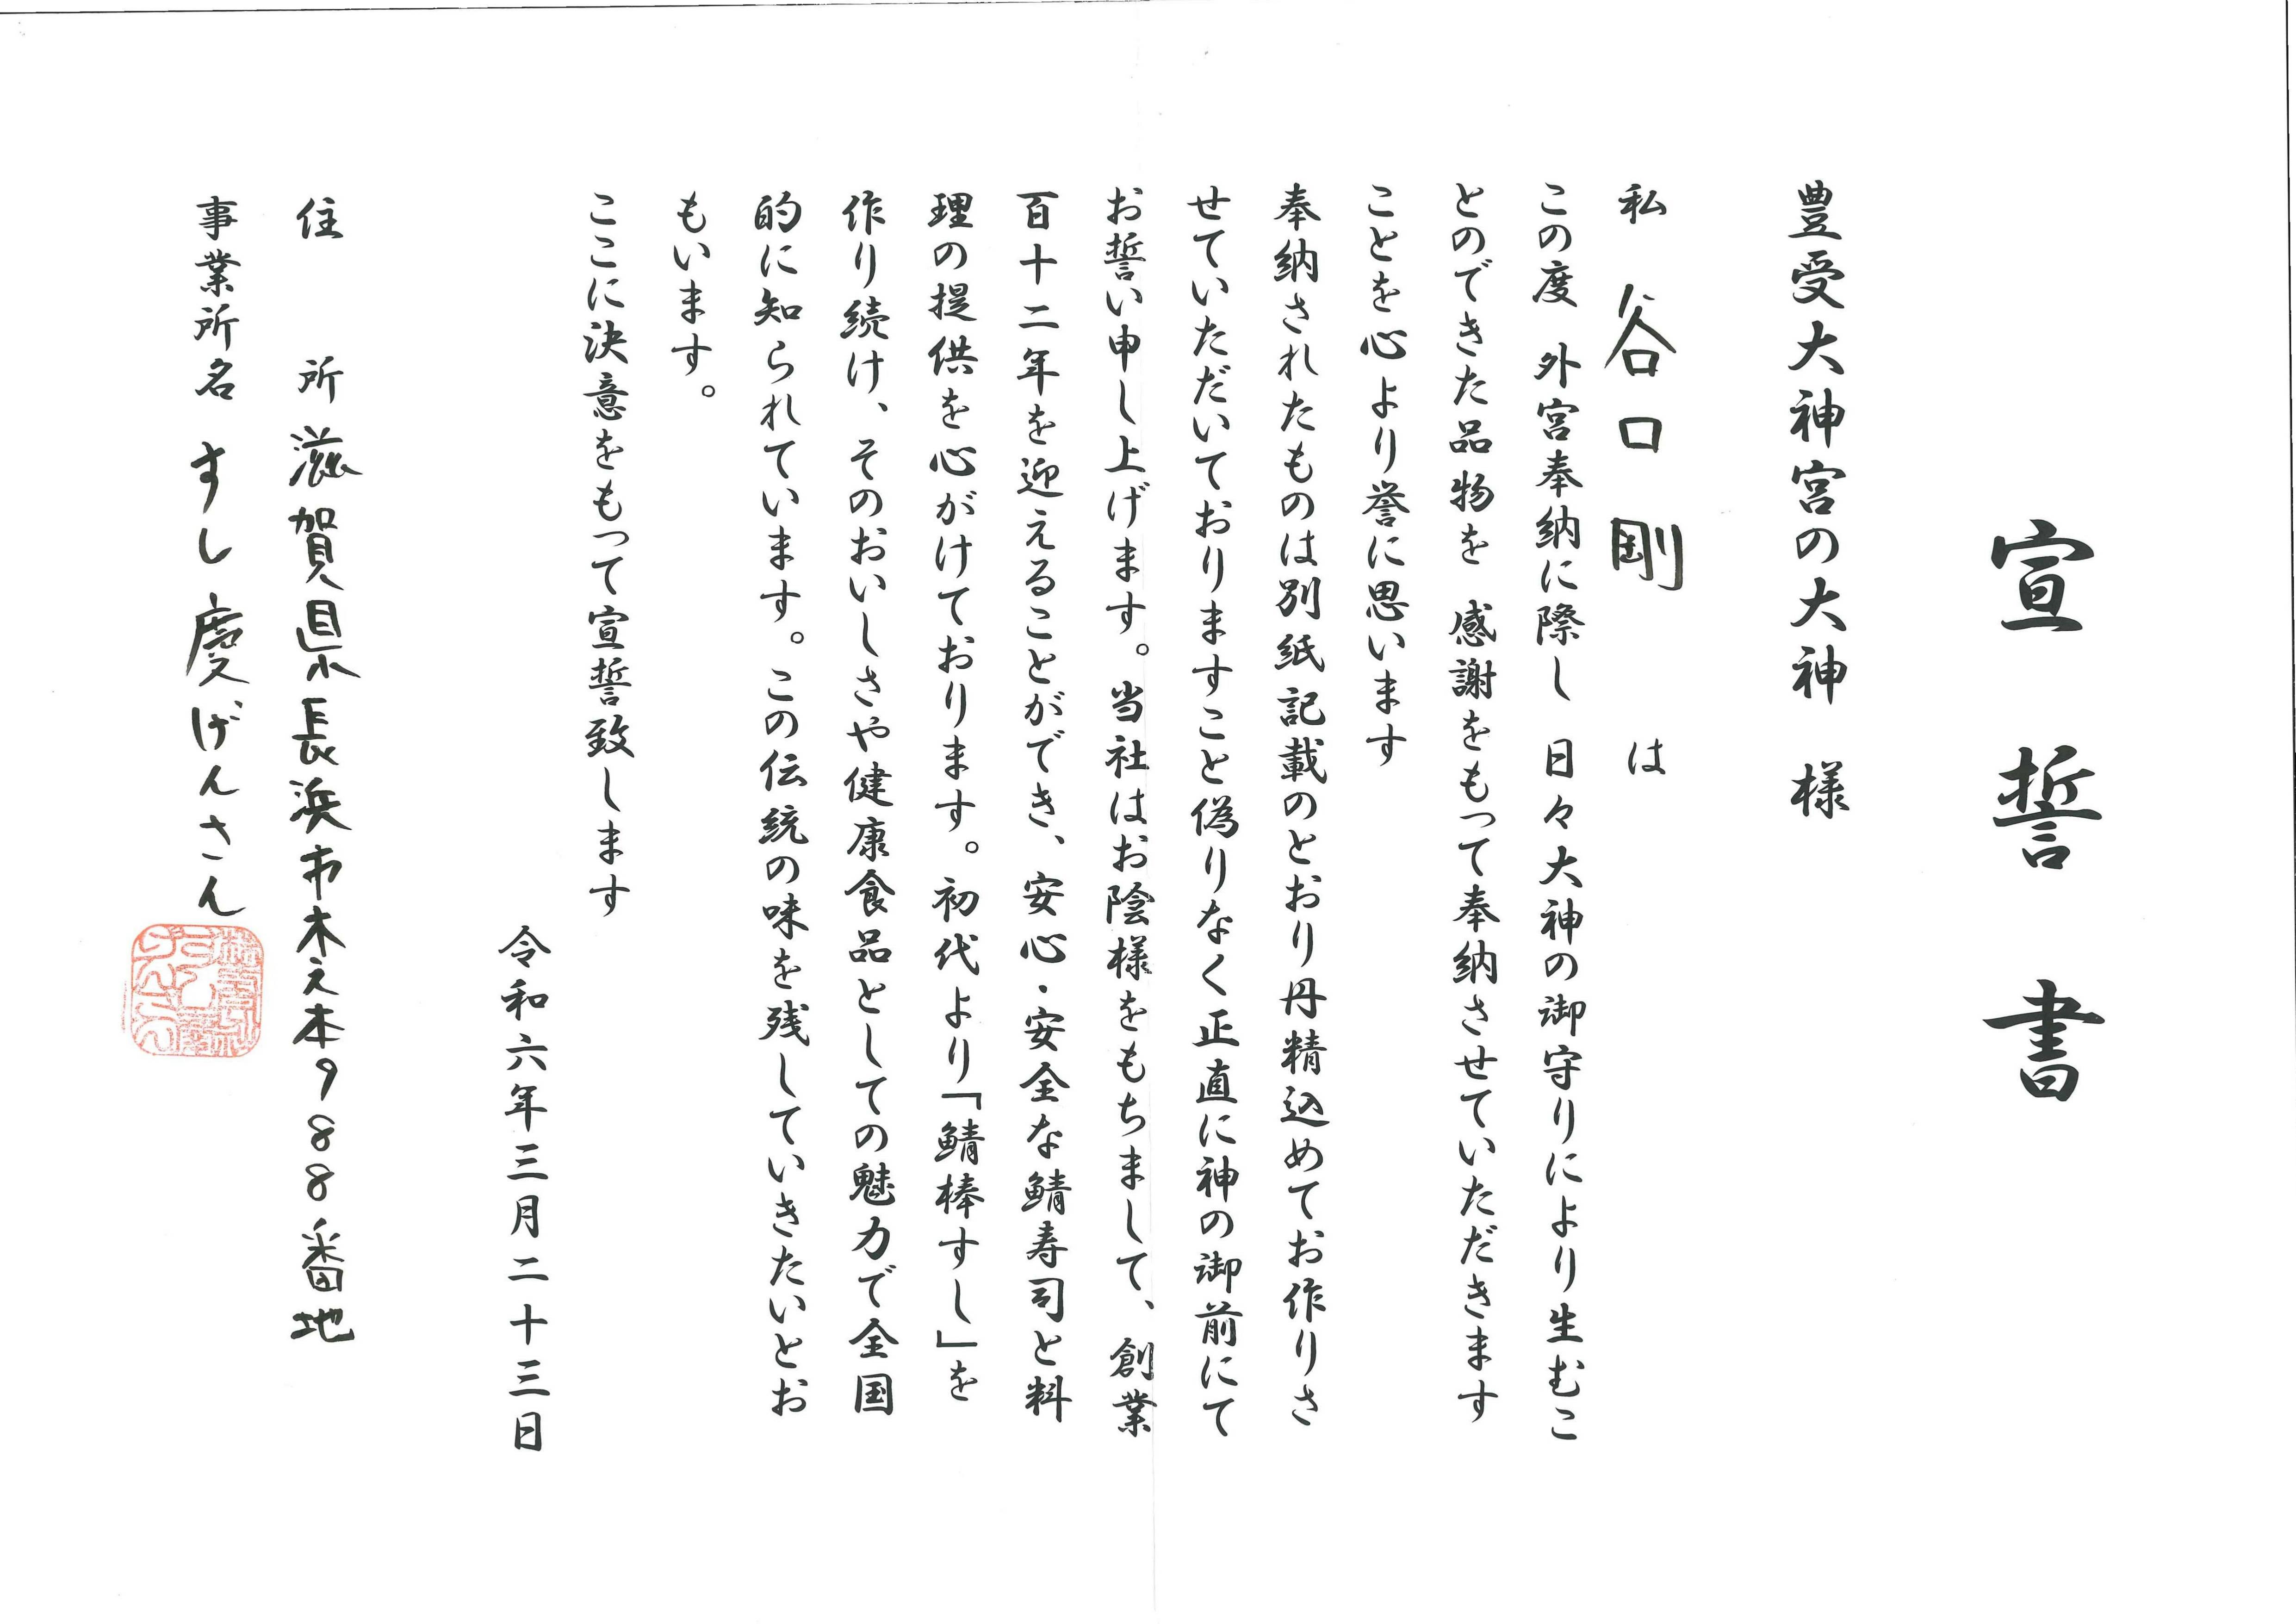 宣誓書
豊受大神宮の大神 様
私 谷口剛 は
この度 外宮奉納に際し 日々大神の御守りにより生むこ
とのできた品物を 感謝をもって奉納させていただきます
ことを心より誉に思います
奉納されたものは別紙記載のとおり丹精込めてお作りさ
せていただいておりますこと偽りなく正直に神の御前にて
お誓い申し上げます。当社はお陰様をもちまして、創業
百十二年を迎えることができ、安心・安全な鯖寿司と料
理の提供を心がけております。初代より「鯖棒すし」を
作り続け、そのおいしさや健康食品としての魅力で全国
的に知られています。この伝統の味を残していきたいとお
もいます。
ここに決意をもって宣誓致します
令和六年三月二十三日
住所 滋賀県長浜市木之本988番地
事業所名 すし慶げんさん